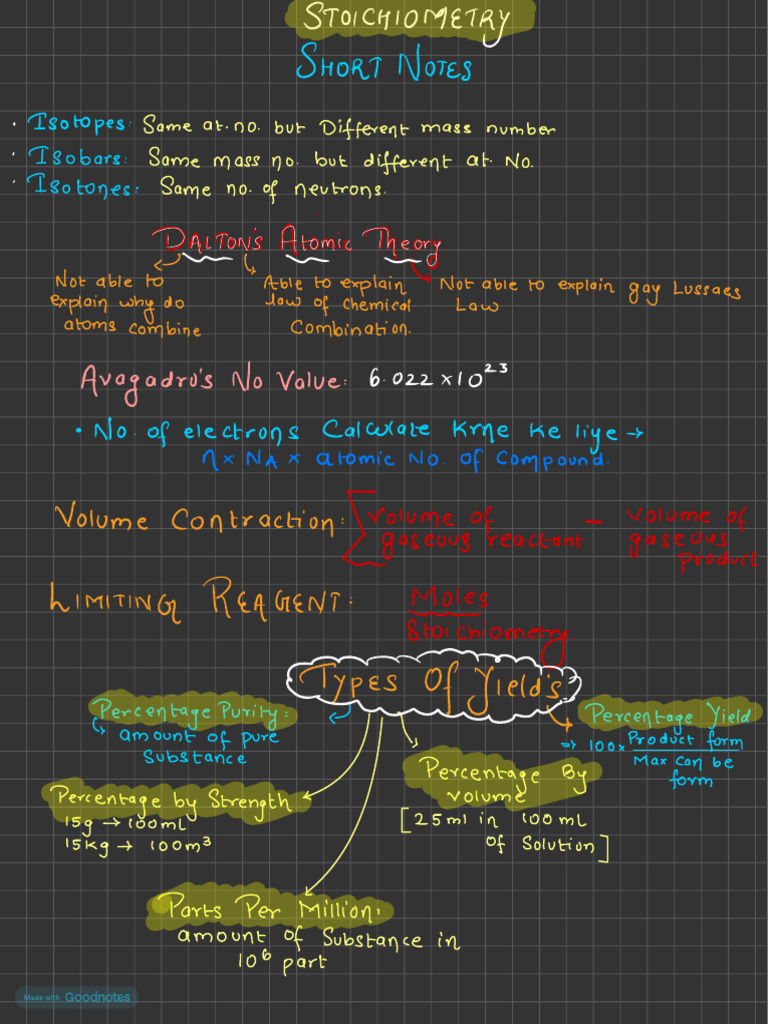 STOICHIOMETRY
SHORT NOTES
· Isotopes: Same at. no. but Different mass number
· Isobars: Same mass no. but different at. No.
· Isotones: Same no. of neutrons.
DALTON'S Atomic Theory
Not able to
explain why do
atoms combine
Able to explain
law of chemical
Combination.
Not able to explain gay Lussaes
Law
Avagadro's No Value: 6.022 × 10²³
• No. of electrons Calculate Krne Ke liye →
n × NA × atomic No. of Compound.
Volume Contraction: volume of gaseous reactant – volume of gaseous product
LIMITING REAGENT: Moles
Stoichiometry
Types Of Yield's
Percentage Purity:
↳ amount of pure
Substance
Percentage Yield
⇒ 100 × Product form
Max can be
form
Percentage by Strength
15g → 100mL
15Kg → 100m³
Percentage By
volume
[25ml in 100 mL
of Solution]
Parts Per Million:
amount of Substance in
10⁶ part
Made with Goodnotes